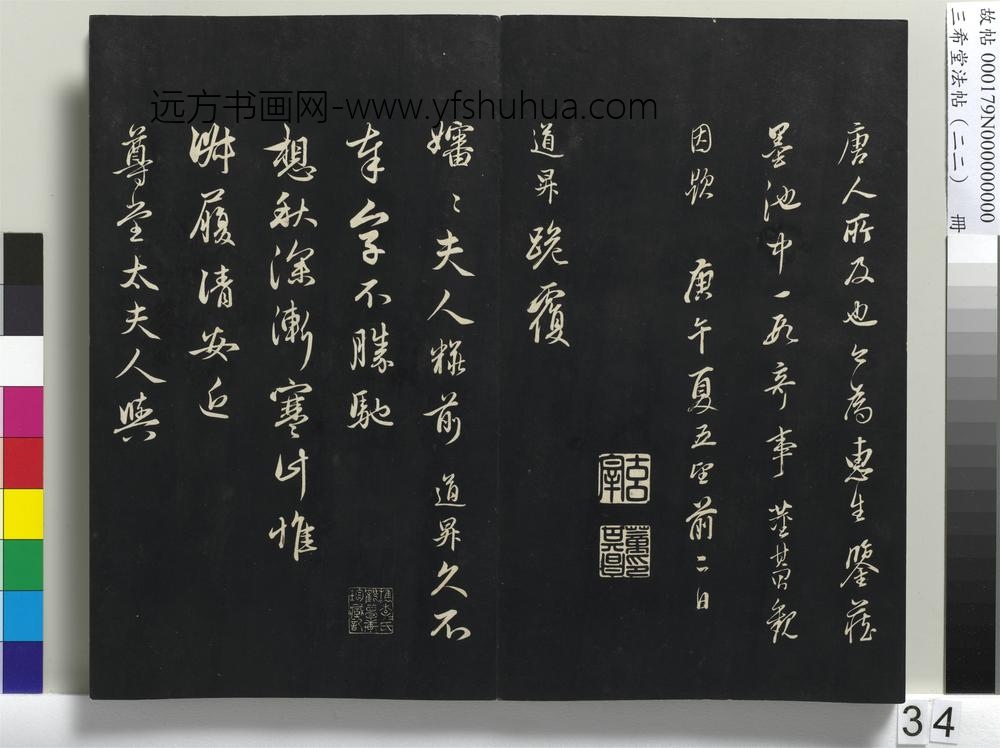 唐人所及也今為惠生鑒藏
墨池中一段奇事董其昌觀
因題 庚午夏五望前二日
道昇跪覆
嬸〻夫人粧前 道昇久不
奉字不勝馳
想秋深漸寒計惟
淑履清安近
尊堂太夫人與
远方书画网-www.yfshuhua.com
故帖 000179N000000000
三希堂法帖（二二） 册
34